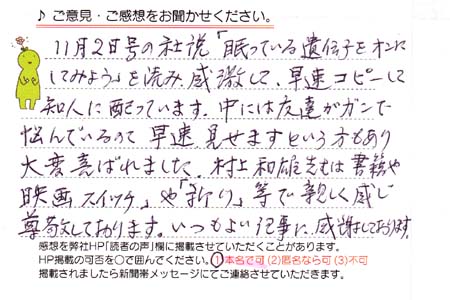 ♪ ご意見・ご感想をお聞かせください。
11月2日号の社説「眠っている遺伝子をオンに
してみよう」を読み、感激して、早速コピーして
知人に配っています。中には友達がガンで
悩んでいるので早速見せますという方もあり
大変喜ばれました。村上和雄先生は書籍や
映画「スイッチ」や「祈り」等で親しく感じ
尊敬しております。いつもよい記事に感謝しております
感想を弊社HP「読者の声」欄に掲載させていただくことがあります。
HP掲載の可否を○で囲んでください。(1)本名で可 (2)匿名なら可 (3)不可
掲載されましたら新聞帯メッセージにてご連絡させていただきます。